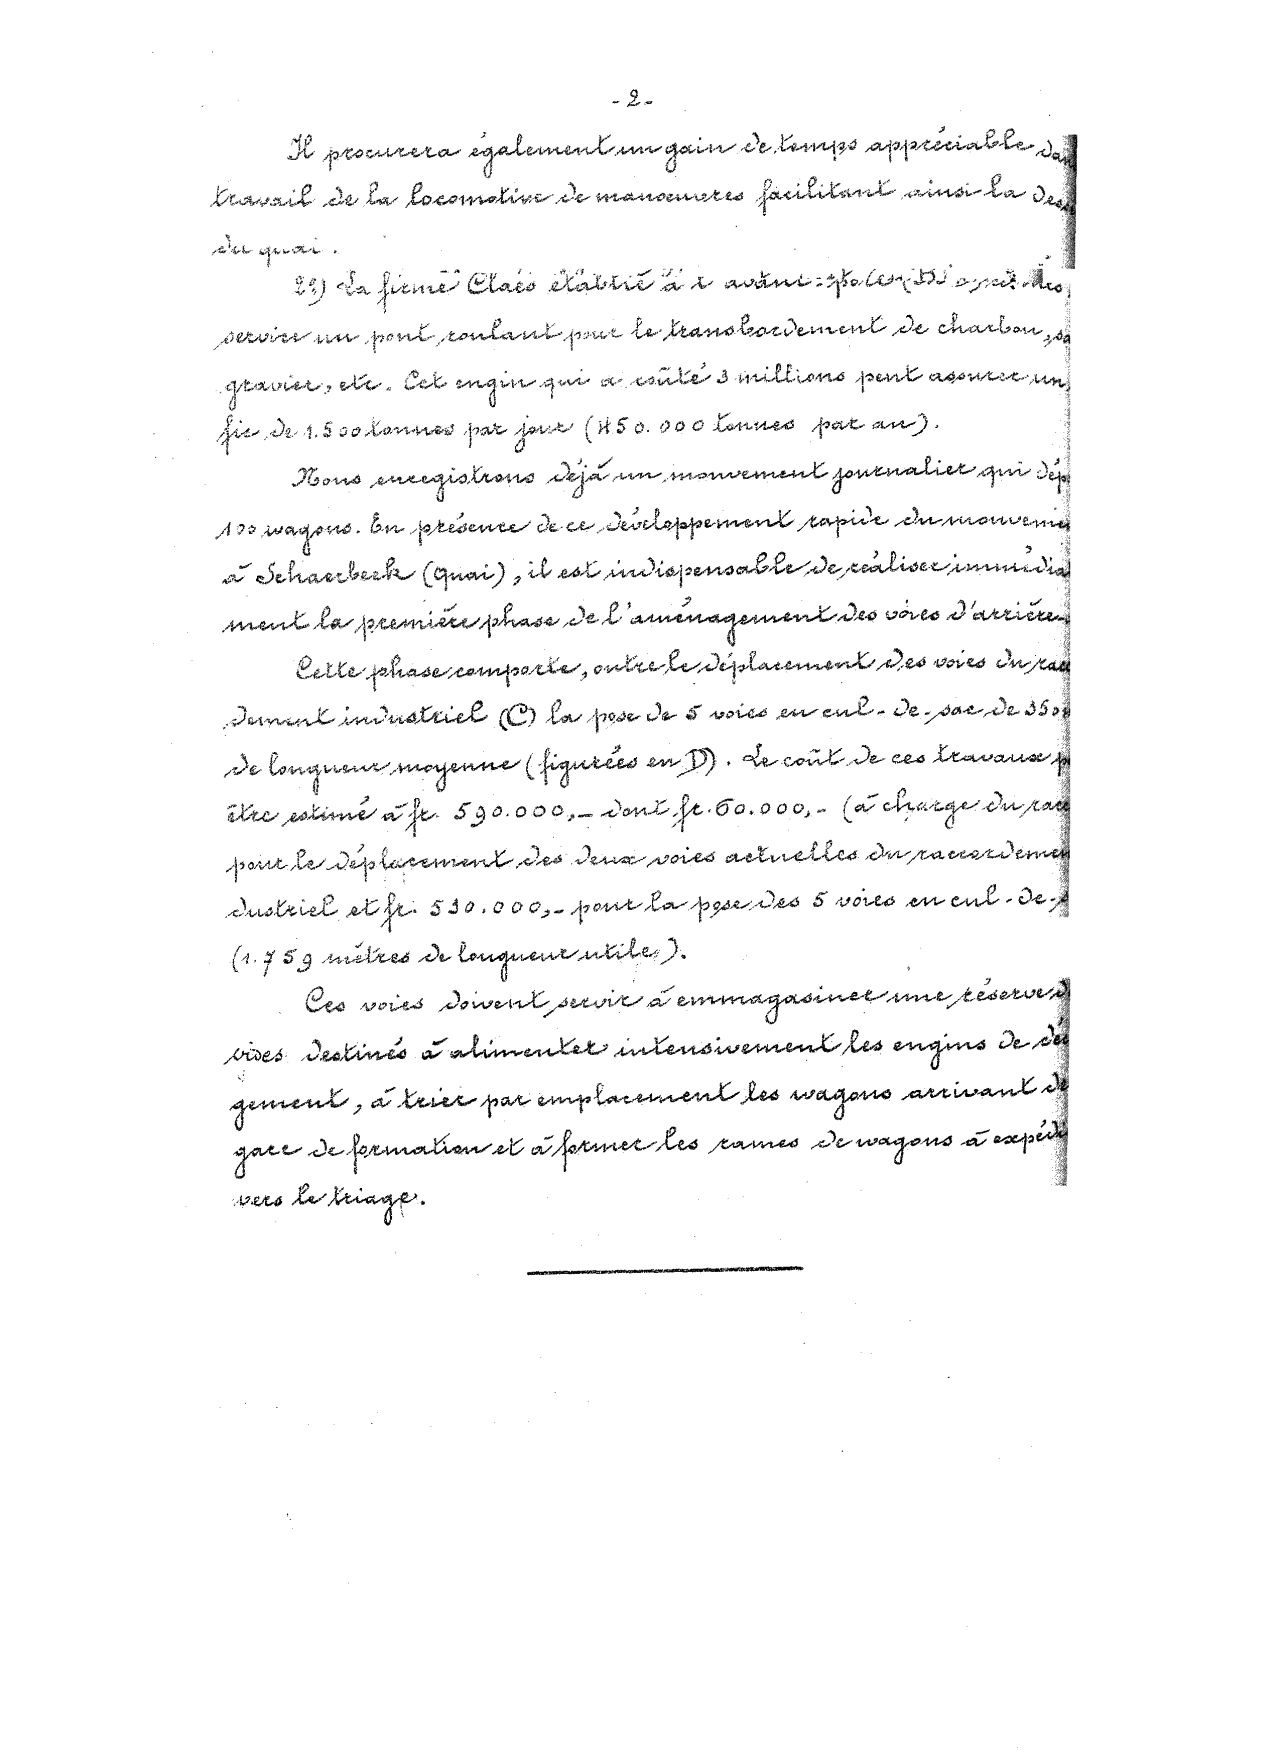 - 2 -
Il procurera également un gain de temps appréciable dan
travail de la locomotive de manœuvres facilitant ainsi la des
du quai.
2º) La firme Claes établie à l'avant-
service un pont roulant pour le transbordement de charbon, sa
gravier, etc. Cet engin qui a coûté 3 millions peut assurer un
fic de 1.500 tonnes par jour (450.000 tonnes par an).
Nous enregistrons déjà un mouvement journalier qui dép
100 wagons. En présence de ce développement rapide du mouveme
à Schaerbeek (quai), il est indispensable de réaliser immédia
ment la première phase de l'aménagement des voies d'arrière-
Cette phase comporte, outre le déplacement des voies du rac
dement industriel (C) la pose de 5 voies en cul-de-sac de 350
de longueur moyenne (figurées en D). Le coût de ces travaux p
être estimé à fr. 590.000,- dont fr. 60.000,- (à charge du rac
pour le déplacement des deux voies actuelles du raccordemen
dustriel et fr. 530.000,- pour la pose des 5 voies en cul-de-s
(1.759 mètres de longueur utile).
Ces voies doivent servir à emmagasiner une réserve d
vides destinés à alimenter intensivement les engins de dé
gement, à trier par emplacement les wagons arrivant de
gare de formation et à former les rames de wagons à expédi
vers le triage.